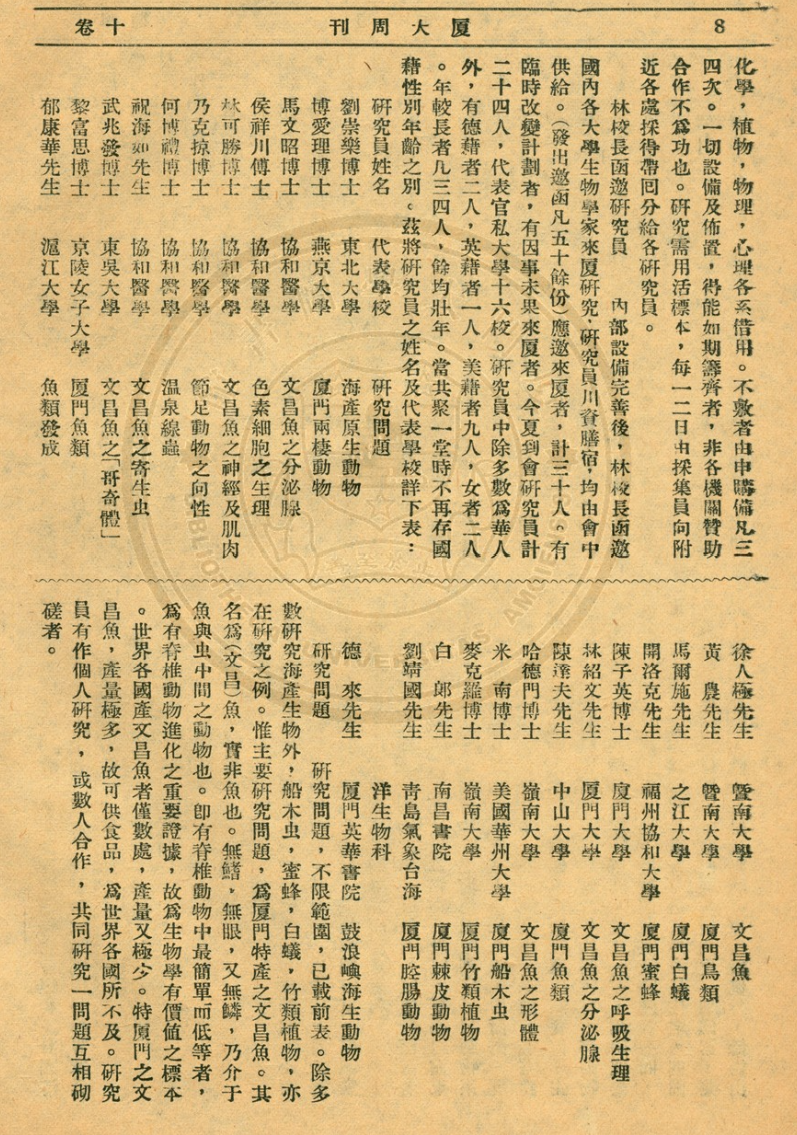 8
厦大周刊
十卷
化學，植物，物理，心理各系借用。不敷者由申購備凡三
四次。一切設備及佈置，得能如期籌齊者，非各機關贊助
合作不爲功也。研究需用活標本，每一二日由採集員向附
近各處採得帶囘分給各研究員。
林校長函邀研究員　內部設備完善後，林校長函邀
國內各大學生物學家來厦研究，研究員川資膳宿，均由會中
供給。（發出邀函凡五十餘份）應邀來厦者，計三十人。有
臨時改變計劃者，有因事未果來厦者。今夏到會研究員計
二十四人，代表官私大學十六校。研究員中除多數爲華人
外，有德藉者二人，英藉者一人，美藉者九人，女者二人
。年較長者凡三四人，餘均壯年。當共聚一堂時不再存國
藉性別年齡之別。茲將研究員之姓名及代表學校詳下表：
研究員姓名　代表學校　研究問題
劉崇樂博士　東北大學　海產原生動物
博愛理博士　燕京大學　厦門兩棲動物
馬文昭博士　協和醫學　文昌魚之分泌腺
侯祥川博士　協和醫學　色素細胞之生理
林可勝博士　協和醫學　文昌魚之神經及肌肉
乃克掠博士　協和醫學　節足動物之向性
何博禮博士　協和醫學　温泉線蟲
祝海如先生　協和醫學　文昌魚之寄生虫
武兆發博士　東吳大學　文昌魚之「哥奇體」
黎富思博士　京陵女子大學　厦門魚類
郁康華先生　滬江大學　魚類發成
徐人極先生　曁南大學　文昌魚
黃　農先生　曁南大學　厦門鳥類
馬爾施先生　之江大學　厦門白蟻
開洛克先生　福州協和大學　厦門蜜蜂
陳子英博士　厦門大學　文昌魚之呼吸生理
林紹文先生　厦門大學　文昌魚之分泌腺
陳達夫先生　中山大學　厦門魚類
哈德門博士　嶺南大學　文昌魚之形體
米　南博士　美國華州大學　厦門船木虫
麥克羅博士　嶺南大學　厦門竹類植物
白　郎先生　南昌書院　厦門棘皮動物
劉靖國先生　青島氣象台海　厦門腔腸動物
洋生物科
德　來先生　厦門英華書院　鼓浪嶼海生動物
研究問題　研究問題，不限範圍，已載前表。除多
數研究海產生物外，船木虫，蜜蜂，白蟻，竹類植物，亦
在研究之例。惟主要研究問題，爲厦門特產之文昌魚。其
名爲（文昌）魚，實非魚也。無鰭，無眼，又無鱗，乃介于
魚與虫中間之動物也。卽有脊椎動物中最簡單而低等者，
爲有脊椎動物進化之重要證據，故爲生物學有價値之標本
。世界各國產文昌魚者僅數處，產量又極少。特厦門之文
昌魚，產量極多，故可供食品，爲世界各國所不及。研究
員有作個人研究，或數人合作，共同研究一問題互相砌
磋者。